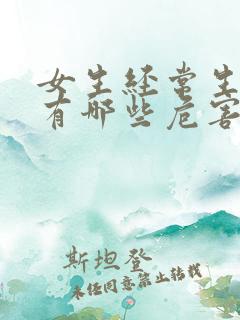 女生经常生
有哪些危害
斯坦登
未经同意禁止转载